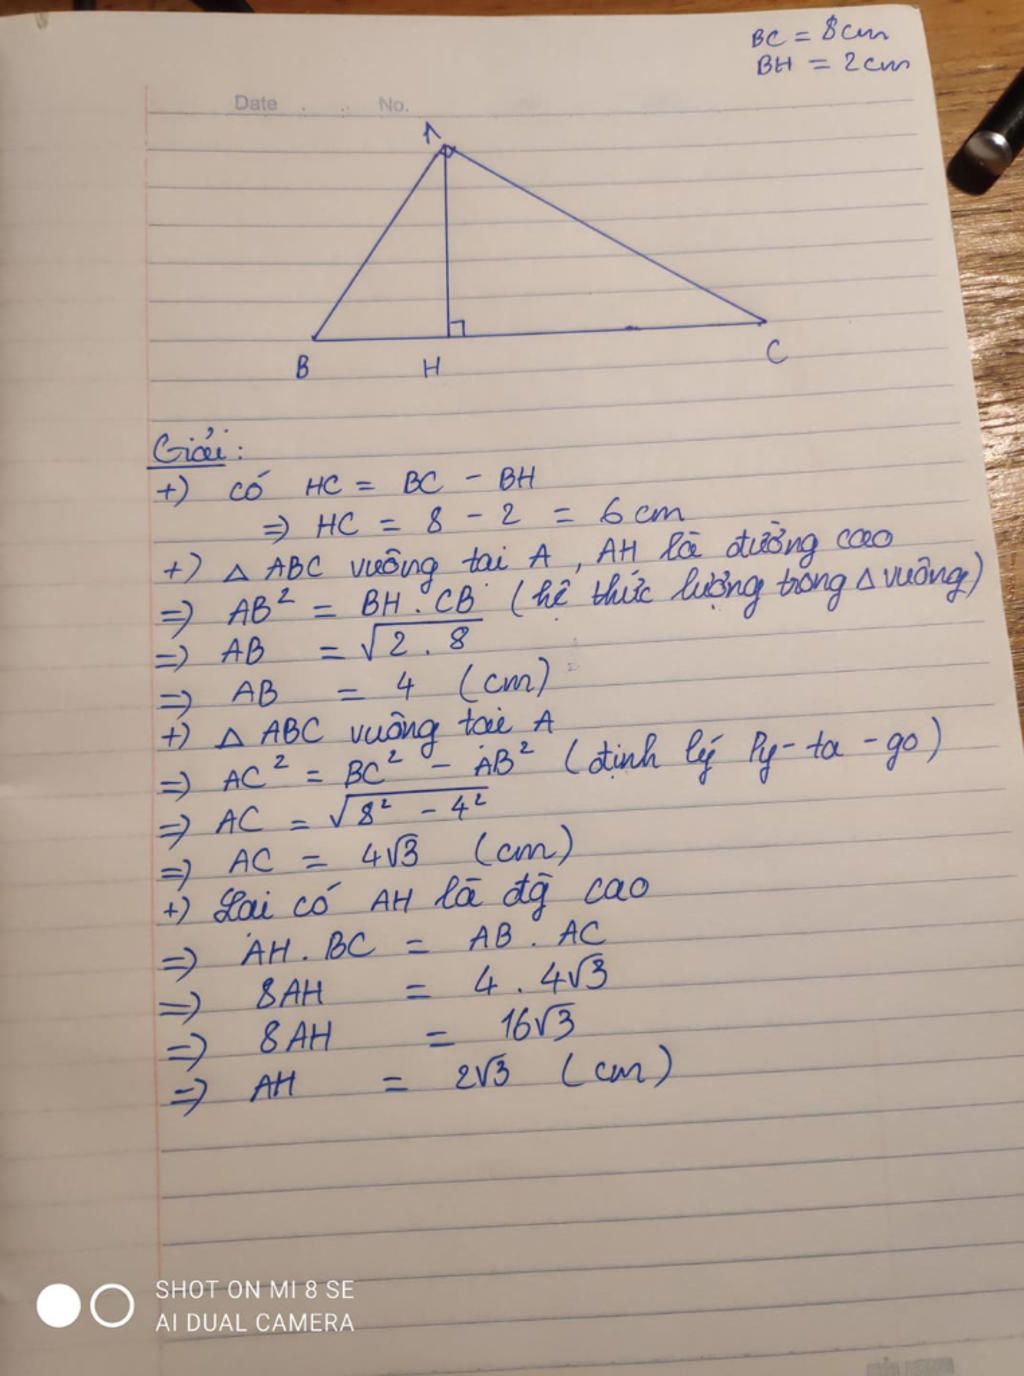 BC = 8cm
BH = 2cm
Date . . No.
A
B H C
Giải:
+) có HC = BC - BH
=> HC = 8 - 2 = 6cm
+) △ ABC vuông tại A, AH là đường cao
=> AB² = BH . CB (hệ thức lượng trong △ vuông)
=> AB = √2 . 8
=> AB = 4 (cm)
+) △ ABC vuông tại A
=> AC² = BC² - AB² (định lý Py-ta-go)
=> AC = √8² - 4²
=> AC = 4√3 (cm)
+) Lại có AH là đg cao
=> AH . BC = AB . AC
=> 8AH = 4 . 4√3
=> 8AH = 16√3
=> AH = 2√3 (cm)
SHOT ON MI 8 SE
AI DUAL CAMERA